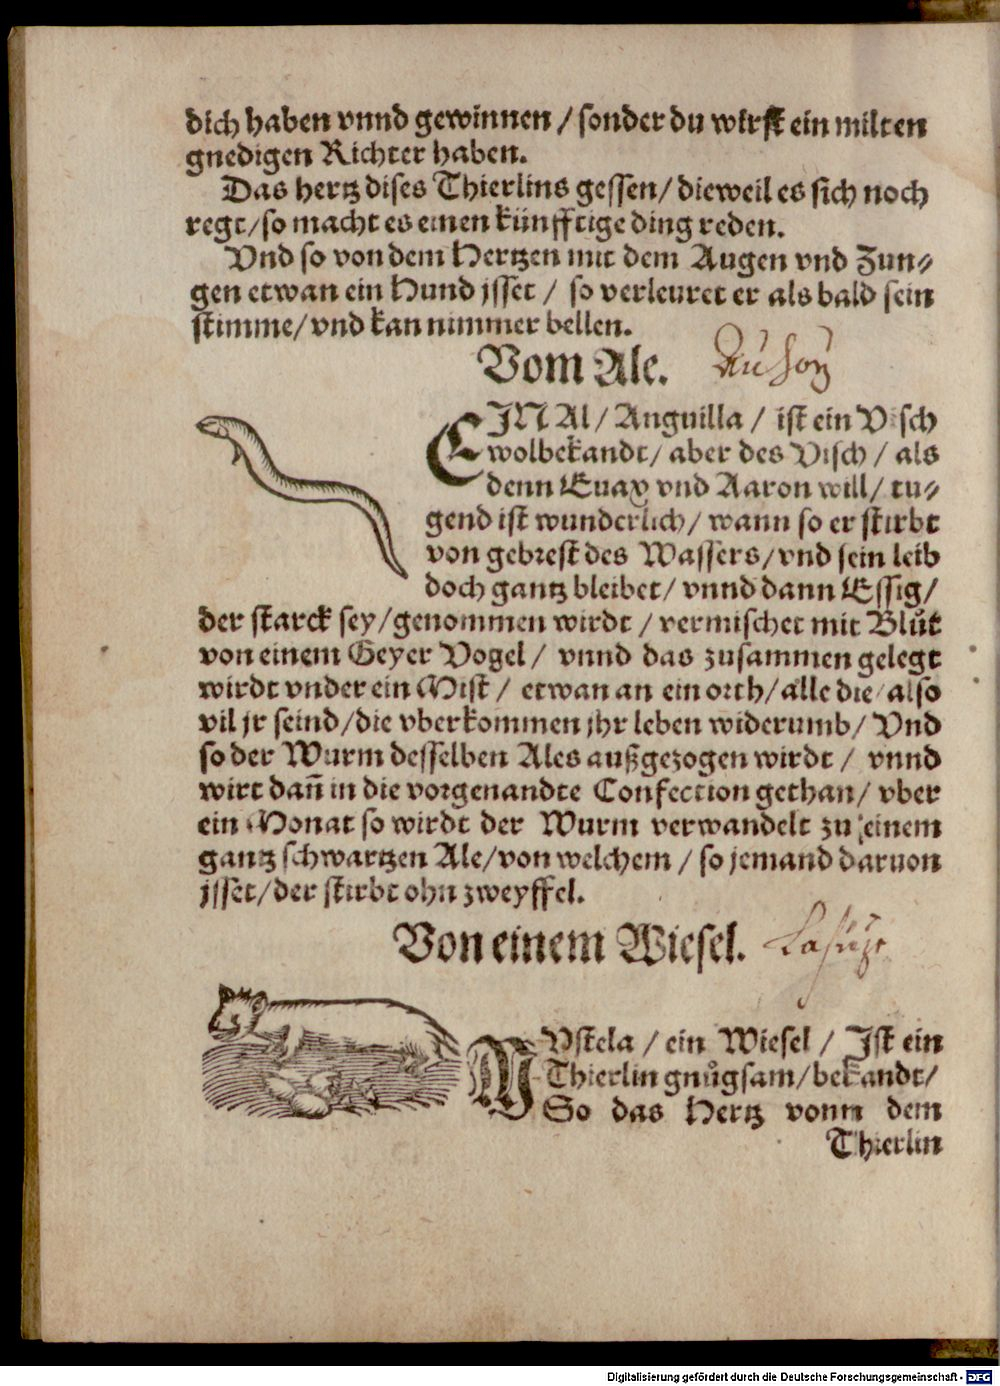 dich haben vnnd gewinnen / sonder du wirst ein milten
gnedigen Richter haben.
Das hertz dises Thierlins gessen / dieweil es sich noch
regt / so macht es einen künfftige ding reden.
Vnd so von dem Hertzen mit dem Augen vnd Zun⸗
gen etwan ein Hund jsset / so verleuret er als bald sein
stimme / vnd kan nimmer bellen.
Vom Ale.
EIN Al / Anguilla / ist ein Visch
wolbekandt / aber des Visch / als
denn Euax vnd Aaron will / tu⸗
gend ist wunderlich / wann so er stirbt
von gebrest des Wassers / vnd sein leib
doch gantz bleibet / vnnd dann Essig /
der starck sey / genommen wirdt / vermischet mit Blůt
von einem Geyer Vogel / vnnd das zusammen gelegt
wirdt vnder ein Mist / etwan an ein orth / alle die also
vil jr seind / die vberkommen jhr leben widerumb / Vnd
so der Wurm desselben Ales außgezogen wirdt / vnnd
wirt dañ in die vorgenandte Confection gethan / vber
ein Monat so wirdt der Wurm verwandelt zu einem
gantz schwartzen Ale / von welchem / so jemand daruon
jsset / der stirbt ohn zweyffel.
Von einem Wiesel.
MVstela / ein Wiesel / Ist ein
Thierlin gnůgsam / bekandt /
So das Hertz vonn dem
Thierlin
Digitalisierung gefördert durch die Deutsche Forschungsgemeinschaft - DFG